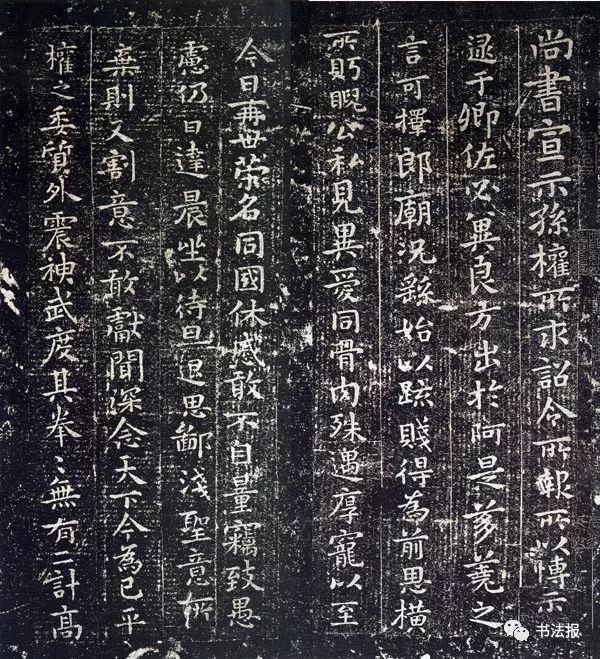 尚書宣示孫權所求詔令所報所以博示
逮于卿佐必冀良方出於阿是芻蕘之
言可擇郎廟況繇始以疏賤得為前恩橫
所眄睨公私見異愛同骨肉殊遇厚寵以至
今日再世榮名同國休慼敢不自量竊致愚
慮仍日達晨坐以待旦退思鄙淺聖意所
棄則又割意不敢獻聞深念天下今為已平
權之委質外震神武度其拳〻無有二計高
书法报